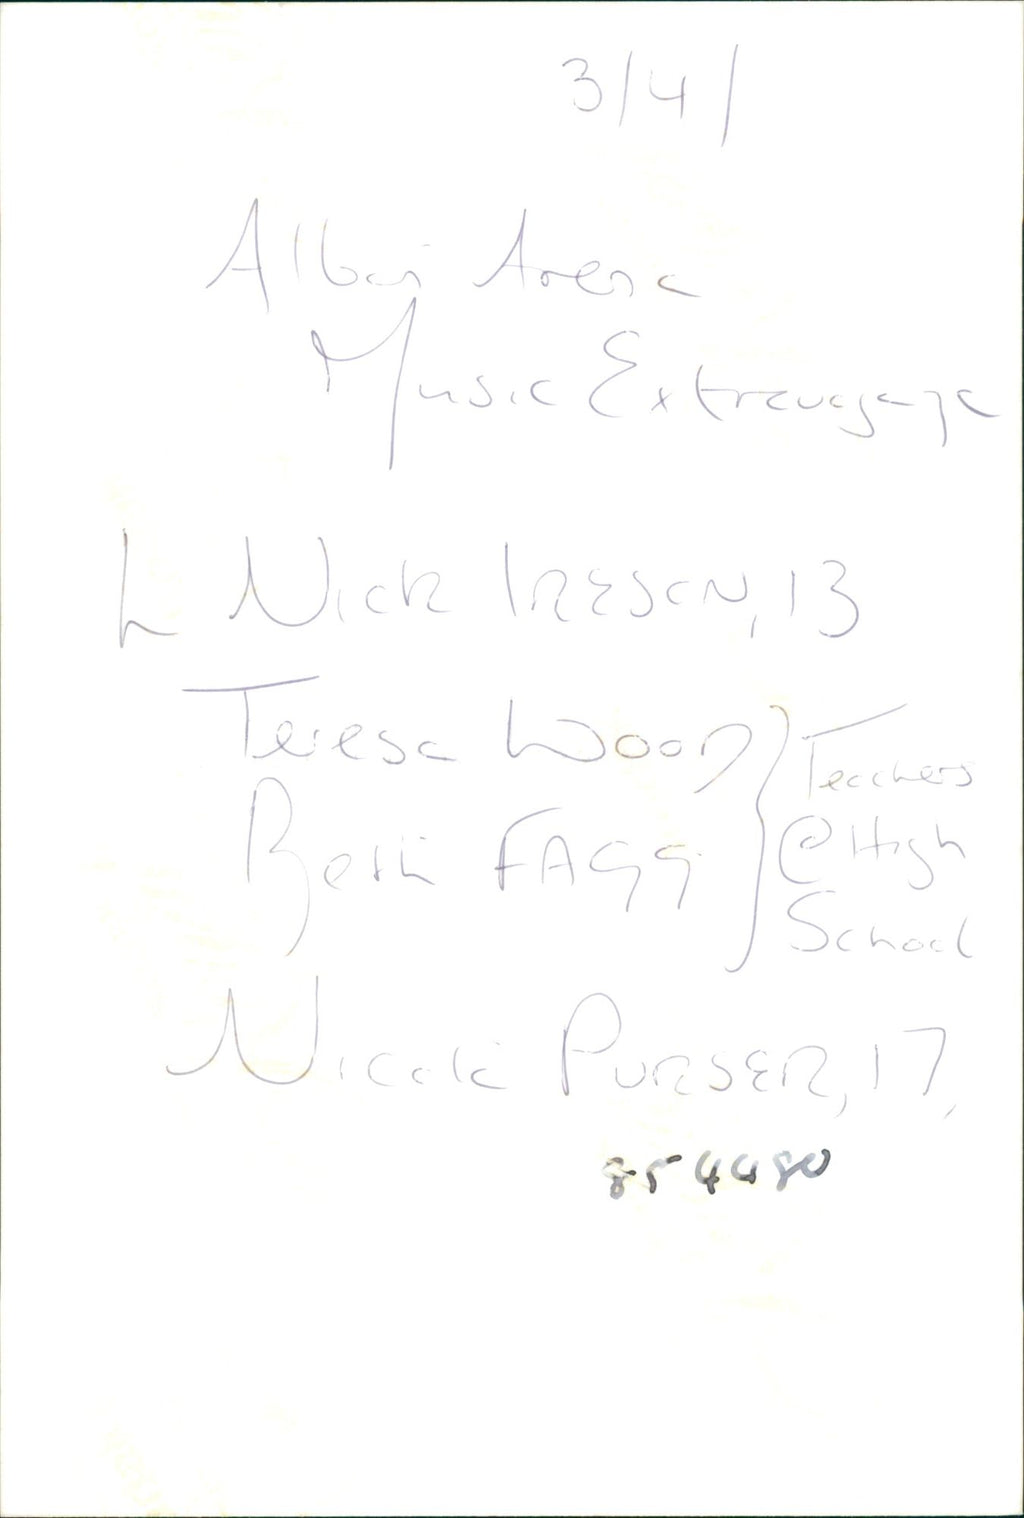 3/4/
Albany Arena
Music Extravaganza
L Nick IRESON, 13
Teresa Wood } Teachers
Beth FAGG } @ High
School
Nicole PURSER, 17,
854480